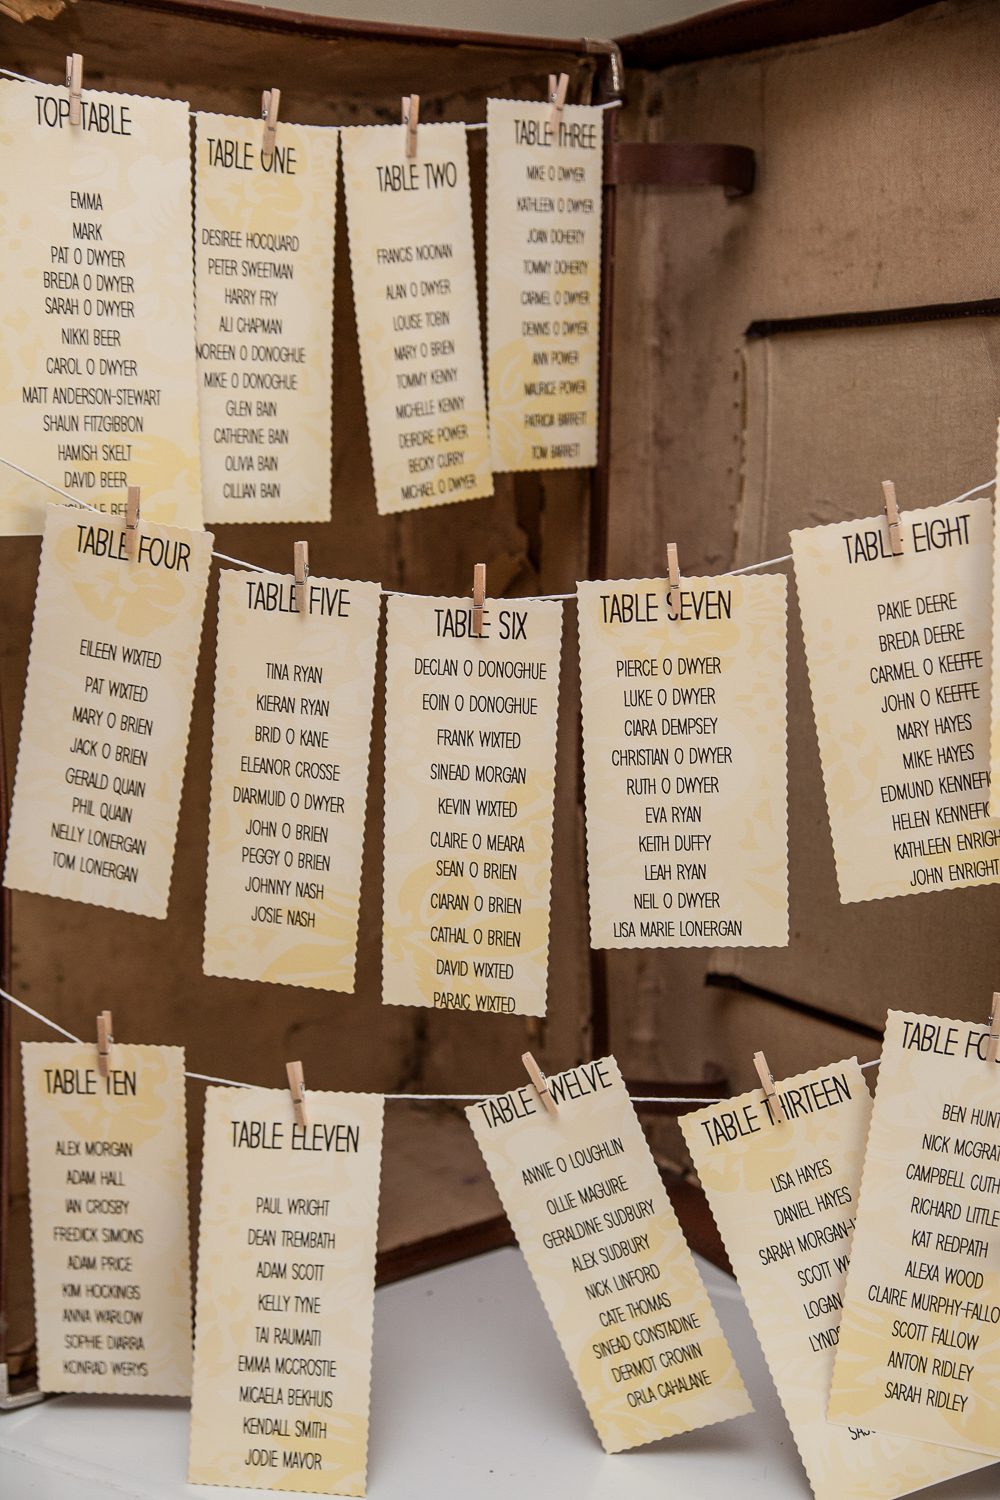 TOP TABLE
EMMA
MARK
PAT O DWYER
BREDA O DWYER
SARAH O DWYER
NIKKI BEER
CAROL O DWYER
MATT ANDERSON-STEWART
SHAUN FITZGIBBON
HAMISH SKELT
DAVID BEER
TABLE ONE
DESIREE HOCQUARD
PETER SWEETMAN
HARRY FRY
ALI CHAPMAN
NOREEN O DONOGHUE
MIKE O DONOGHUE
GLEN BAIN
CATHERINE BAIN
OLIVIA BAIN
CILLIAN BAIN
TABLE TWO
FRANCIS NOONAN
ALAN O DWYER
LOUISE TOBIN
MARY O BRIEN
TOMMY KENNY
MICHELLE KENNY
DEIRDRE POWER
BECKY CURRY
MICHAEL O DWYER
TABLE THREE
MIKE O DWYER
KATHLEEN O DWYER
JOAN DOHERTY
TOMMY DOHERTY
CARMEL O DWYER
DENNIS O DWYER
ANN POWER
MAURICE POWER
PATRICIA BARRETT
TOM BARRETT
TABLE FOUR
EILEEN WIXTED
PAT WIXTED
MARY O BRIEN
JACK O BRIEN
GERALD QUAIN
PHIL QUAIN
NELLY LONERGAN
TOM LONERGAN
TABLE FIVE
TINA RYAN
KIERAN RYAN
BRID O KANE
ELEANOR CROSSE
DIARMUID O DWYER
JOHN O BRIEN
PEGGY O BRIEN
JOHNNY NASH
JOSIE NASH
TABLE SIX
DECLAN O DONOGHUE
EOIN O DONOGHUE
FRANK WIXTED
SINEAD MORGAN
KEVIN WIXTED
CLAIRE O MEARA
SEAN O BRIEN
CIARAN O BRIEN
CATHAL O BRIEN
DAVID WIXTED
PARAIC WIXTED
TABLE SEVEN
PIERCE O DWYER
LUKE O DWYER
CIARA DEMPSEY
CHRISTIAN O DWYER
RUTH O DWYER
EVA RYAN
KEITH DUFFY
LEAH RYAN
NEIL O DWYER
LISA MARIE LONERGAN
TABLE EIGHT
PAKIE DEERE
BREDA DEERE
CARMEL O KEEFFE
JOHN O KEEFFE
MARY HAYES
MIKE HAYES
EDMUND KENNEFI
HELEN KENNEFIC
KATHLEEN ENRIGH
JOHN ENRIGHT
TABLE TEN
ALEX MORGAN
ADAM HALL
IAN CROSBY
FREDICK SIMONS
ADAM PRICE
KIM HOCKINGS
ANNA WARLOW
SOPHIE DIARRA
KONRAD WERYS
TABLE ELEVEN
PAUL WRIGHT
DEAN TREMBATH
ADAM SCOTT
KELLY TYNE
TAI RAUMATI
EMMA MCCROSTIE
MICAELA BEKHUIS
KENDALL SMITH
JODIE MAVOR
TABLE TWELVE
ANNIE O LOUGHLIN
OLLIE MAGUIRE
GERALDINE SUDBURY
ALEX SUDBURY
NICK LINFORD
CATE THOMAS
SINEAD CONSTADINE
DERMOT CRONIN
ORLA CAHALANE
TABLE THIRTEEN
LISA HAYES
DANIEL HAYES
SARAH MORGAN-
SCOTT WH
LOGAN
LYNDS
TABLE FO
BEN HUNT
NICK MCGRA
CAMPBELL CUTH
RICHARD LITTLE
KAT REDPATH
ALEXA WOOD
CLAIRE MURPHY-FALLO
SCOTT FALLOW
ANTON RIDLEY
SARAH RIDLEY